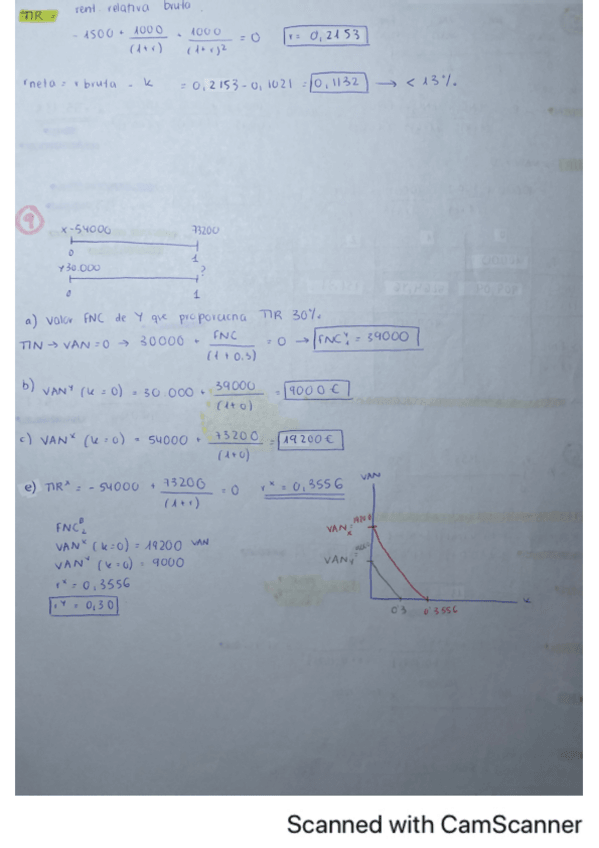 TIR = rent. relativa bruta.
- 1500 + 1000/(1+r) + 1000/(1+r)² = 0 r = 0,2153
rneta = r bruta - k = 0,2153 - 0,1021 = 0,1132 → < 13%.
9
x -54000 73200
0 1
Y 30.000 ?
0 1
a) Valor FNC de Y que proporciona TIR 30%.
TIR → VAN = 0 → 30000 + FNC/(1+0.3) = 0 → FNC₁ʸ = 39000
b) VANʸ (k = 0) = 30.000 + 39000/(1+0) = 9000 €
c) VANˣ (k = 0) = 54000 + 73200/(1+0) = 19200 €
e) TIRˣ = - 54000 + 73200/(1+r) = 0 rˣ = 0,3556
VAN
FNC
VANˣ (k=0) = 19200 VAN
VANˣ (k=0) = 9000
rˣ = 0,3556
rʸ = 0,30
VANₓ
VANᵧ
0'3 0'3556 k
Scanned with CamScanner